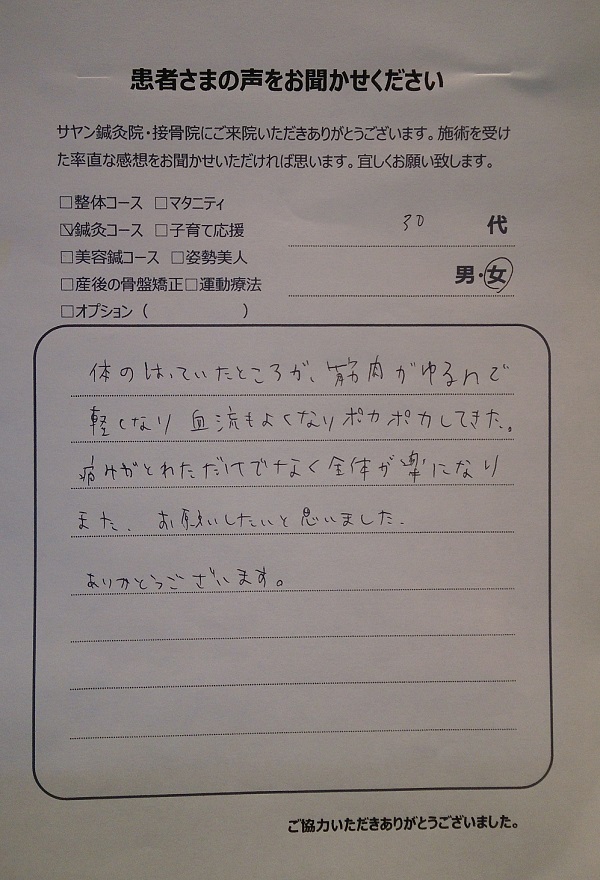 患者さまの声をお聞かせください
サヤン鍼灸院・接骨院にご来院いただきありがとうございます。施術を受け
た率直な感想をお聞かせいただければ思います。宜しくお願い致します。
□整体コース □マタニティ
☑鍼灸コース □子育て応援
30 代
□美容鍼コース □姿勢美人
男・女
□産後の骨盤矯正□運動療法
□オプション（ ）
体のはっていたところが、筋肉がゆるんで
軽くなり 血流もよくなりポカポカしてきた。
痛みがとれただけでなく全体が楽になり
また、お願いしたいと思いました.
ありがとうございます。
ご協力いただきありがとうございました。